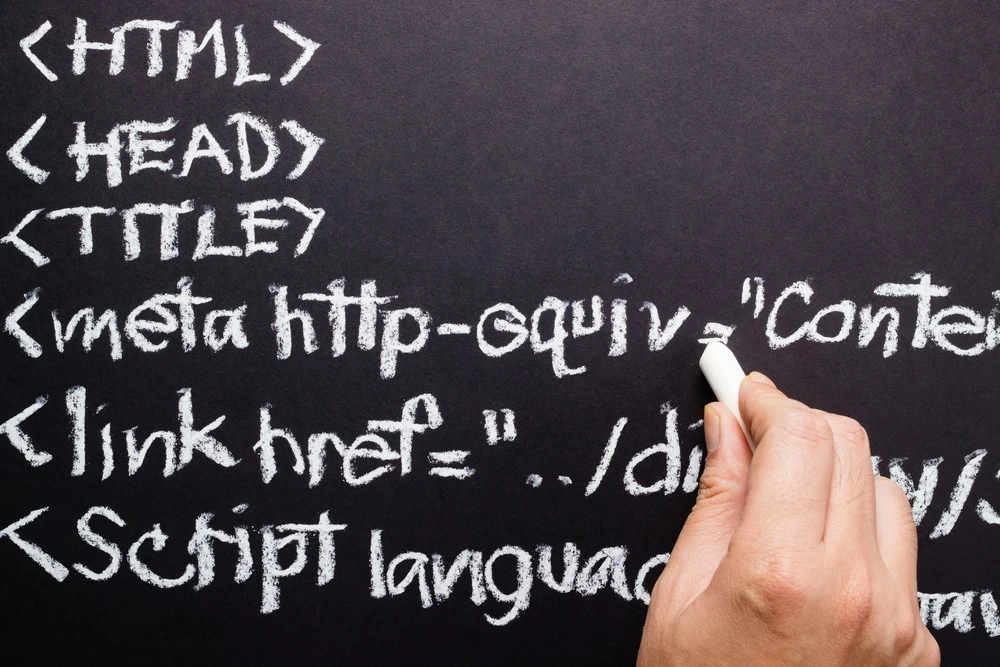 <HTML>
<HEAD>
<TITLE>
<meta http-equiv="Conte
<link href="../di
<Script langua